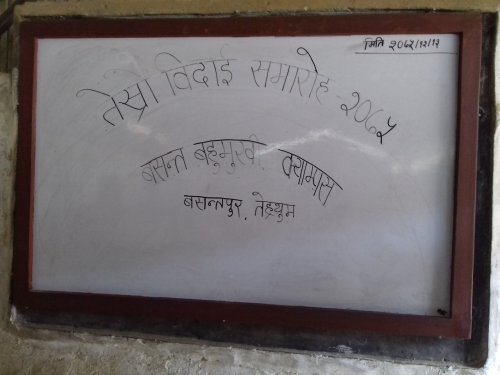 मिति २०७५/१२/१२
तेस्रो विदाई समारोह-२०७५
बसन्त बहुमुखी क्याम्पस
बसन्तपुर, तेह्रथुम